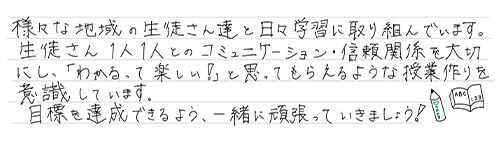 様々な地域の生徒さん達と日々学習に取り組んでいます。
生徒さん1人1人とのコミュニケーション・信頼関係を大切
にし、「わかるって楽しい!」と思ってもらえるような授業作りを
意識しています。
目標を達成できるよう、一緒に頑張っていきましょう!
ABC
123